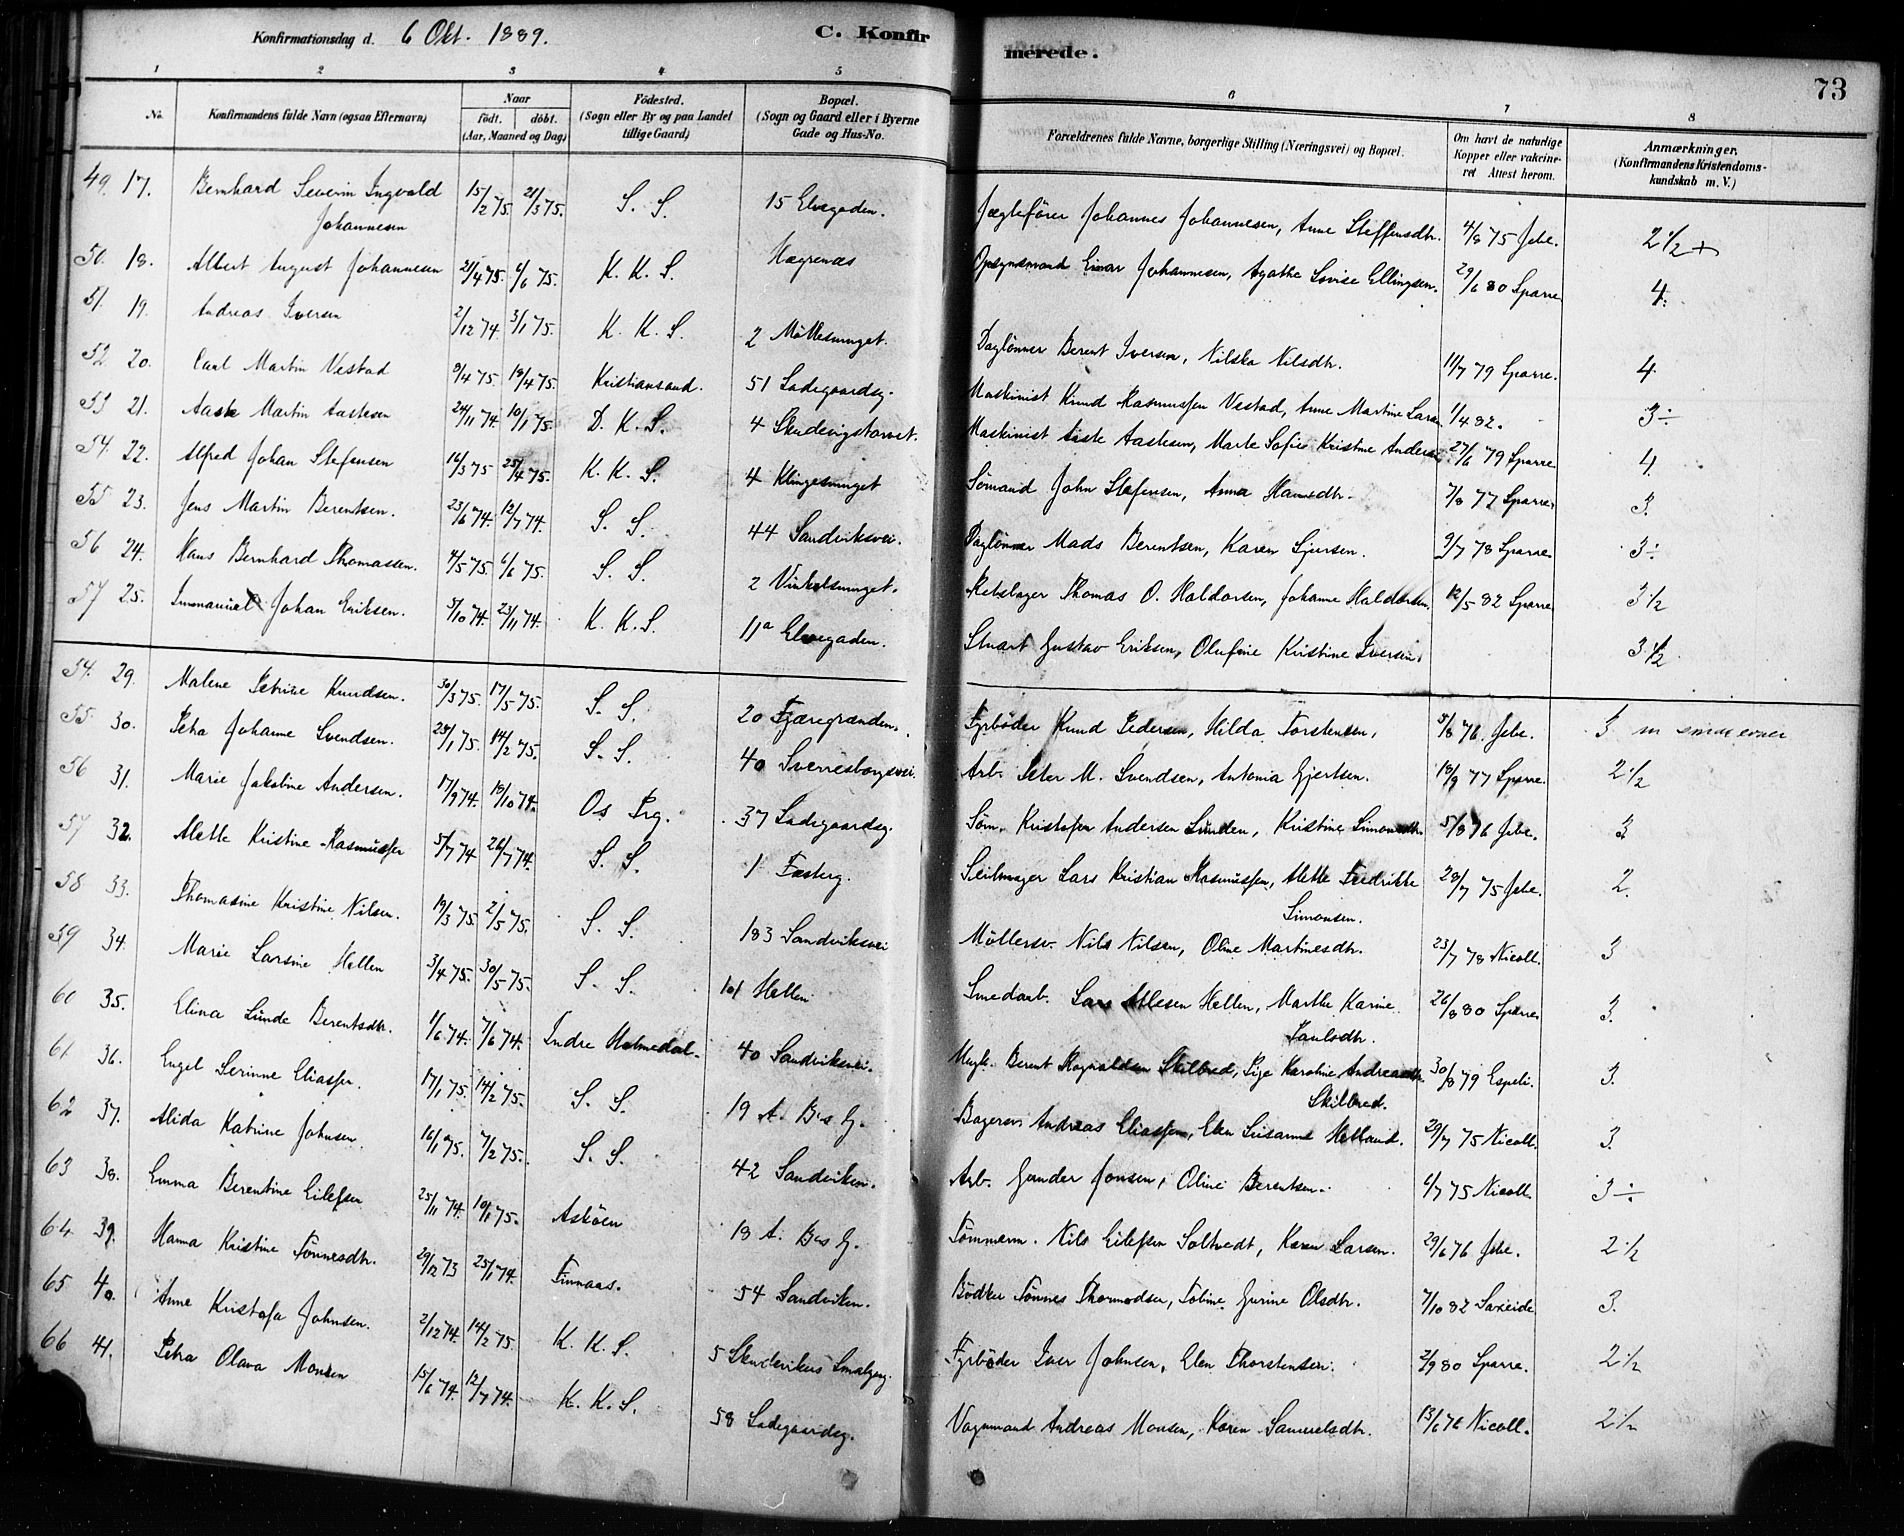 Konfirmationsdag d. 6 Okt. 1889. C. Konfirmerede. 73
1 2 3 4 5 6 7 8
No. Konfirmandens fulde Navn (ogsaa Efternavn) Naar født. døbt. (Aar, Maaned og Dag) Fødested. (Sogn eller By og paa Landet tillige Gaard) Bopæl. (Sogn og Gaard eller i Byerne Gade og Hus-No. Forældrenes fulde Navne, borgerlige Stilling (Næringsvei) og Bopæl. Om havt de naturlige Kopper eller vakcineret Attest herom. Anmærkninger. (Konfirmandens Kristendomskundskab m. V.)
49. 17. Bernhard Severin Ingvald Johannesen 15/2 75. 21/3 75. S. S. 15 Elvegaden. Jægtefører Johannes Johannesen, Anne Steffensdtr. 4/8 75 Jebe. 2 1/2 +
50. 18. Albert August Johannesen 21/4 75. 6/6 75. K. K. S. Hægrenæs Opsynsmand Einar Johannesen, Agathe Lovise Ellingsen. 29/6 80 Sparre 4.
51. 19. Andreas Iversen 2/12 74. 3/1 75. K. K. S. 2 Møllesmuget. Daglønner Berent Iversen, Nilska Nilsdtr. 11/7 79 Sparre. 4
52 20. Carl Martin Vestad 9/4 75. 18/4 75. Kristiansand. 51 Ladegaardsg. Maskinist Knud Rasmussen Vestad, Anne Martine Larsen 1/4 82. 3 ÷
53 21. Aaste Martin Aastesen 24/11 74. 10/1 75. D. K. S. 4 Skudevigstorvet. Maskinist Aaste Aastesen, Marte Sofie Kristine Andersen 27/6 79 Sparre 4.
54. 22. Alfred Johan Stefensen 16/3 75 25/4 75. K. K. S. 4 Klingesmuget Sømand John Stefensen, Anna Hansdtr. 7/8 77 Sparre. 3.
55 23. Jens Martin Berentsen. 23/6 74. 12/7 74. S. S. 44 Sandviksvei. Daglønner Mads Berentsen, Karen Sjursen. 9/7 78 Sparre. 3 ÷
56 24. Hans Bernhard Thomassen. 4/5 75. 6/6 75. S. S. 2 Vinkelsmuget. Rebslager Thomas O. Haldorsen, Johanne Haldorsen. 12/5 82 Sparre 3 1/2
57 25. Immanuel Johan Eriksen. 5/10 74. 23/11 74. K. K. S. 11a Elvegaden. Stuart Gustav Eriksen, Olufine Kristine Iversen. 3 1/2
54. 29. Malene Petrine Knudsen. 30/3 75. 17/5 75. S. S. 20 Fjæregrænden. Fyrbøder Knud Pedersen, Hilda Torstensen, 5/8 76. Jebe. 3 m smaa evner
55 30. Petra Johanne Svendsen. 23/1 75. 14/2 75. S. S. 40 Sverresborgsvei. Arb. Peter M. Svendsen, Antonia Gjertsen. 18/9 77 Sparre. 2 1/2
56 31. Marie Jakobine Andersen. 17/9 74. 18/10 74. Os Prg. 37 Ladegaardsg. Søm. Kristofer Andersen Lunden, Kristine Simonsdtr. 5/8 76 Jebe. 3
57 32. Mette Kristine Rasmussen 5/7 74 26/7 74. S. S. 1 Festeg. Seilmager Lars Kristian Rasmussen, Mette Fredrikke Simonsen. 28/7 75 Jebe. 2.
58 33. Thomasine Kristine Nilsen. 19/3 75. 2/5 75. S. S. 183 Sandviksvei Møllersv. Nils Nilsen, Oline Martinesdtr. 23/7 78 Nicoll. 3
59 34. Marie Larsine Hellen 3/4 75. 30/5 75. S. S. 101 Hellen Smedarb. Lars Nilesen Hellen, Marthe Karine Paulsdtr. 26/8 80 Sparre. 3.
60 35. Elina Lunde Berentsdtr. 1/6 74. 7/6 74. Indre Holmedal. 40 Sandviksvei. Berent Ragnvaldsen Skilbred, Sige Karoline Andreasdtr. Skilbred. 30/8 79 Espeli. 3.
61 36. Engel Serinne Eliassen. 17/1 75. 14/2 75. S. S. 19 A. B's G. Bagersv. Andreas Eliassen, Elen Susanne Helland. 29/7 75 Nicoll. 3.
62 37. Alida Katrine Johnsen. 16/1 75. 7/2 75. S. S. 42 Sandviken. Arb. Gunder Jonsen, Oline Berentsen. 6/7 75 Nicoll. 3 ÷
63 38. Emma Berentine Eilefsen 25/11 74. 10/1 75. Askøen 18 A. B's G. Tømmerm. Nils Eilefsen Soltvedt, Karen Larsen. 29/6 76 Jebe. 2 1/2
64 39. Hanna Kristine Tønnesdtr. 29/12 73 25/1 74. Finnaas. 54 Sandviken. Bødker Tønnes Thormodsen, Tobine Gurine Olsdtr. 7/10 82 Saxeide 3.
65 40. Anne Kristofa Johnsen. 2/12 74. 14/2 75. K. K. S. 5 Skudevikens Smalgang. Fyrbøder Iver Johnsen, Elen Thorstensen. 2/9 80 Sparre. 2 1/2
66 41. Petra Olava Monsen 15/6 74. 12/7 74. K. K. S. 58 Ladegaardsg. Vognmand Andreas Monsen, Karen Samuelsdtr. 13/6 76 Nicoll. 2 1/2